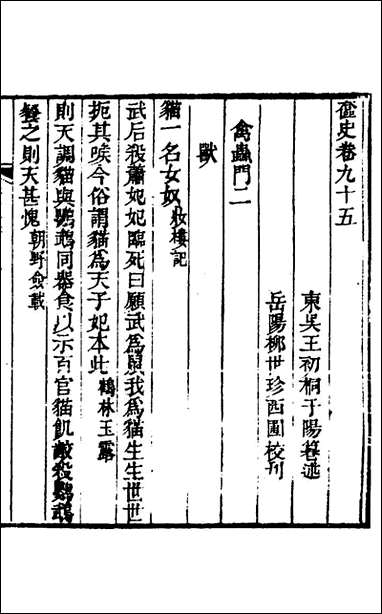 奩史卷九十五
東吳王初桐于陽纂述
岳陽柳世珍西圃校刊
禽蟲門二
獸
貓一名女奴妝樓記
武后殺蕭妃妃臨死曰願武為鼠我為貓生生世世
扼其喉今俗謂貓為天子妃本此鶴林玉露
則天調貓與鸚鵡同器食以示百官貓飢遂殺鸚鵡
餐之則天甚愧朝野僉載